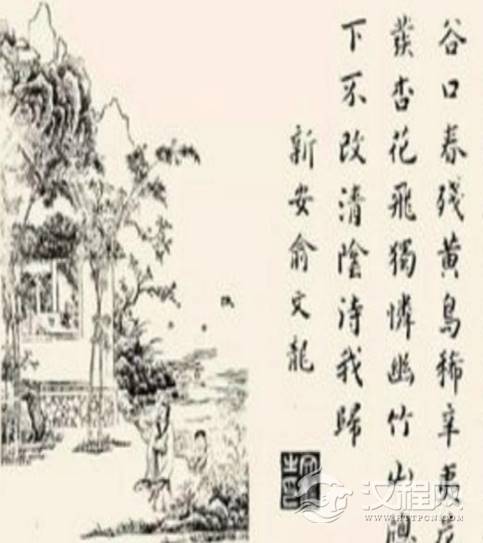 谷口春残黄鳥稀辛夷
發杏花飛獨憐幽竹山
下不改清陰待我歸
新安俞文龍
汉程网
HTTPCN.COM